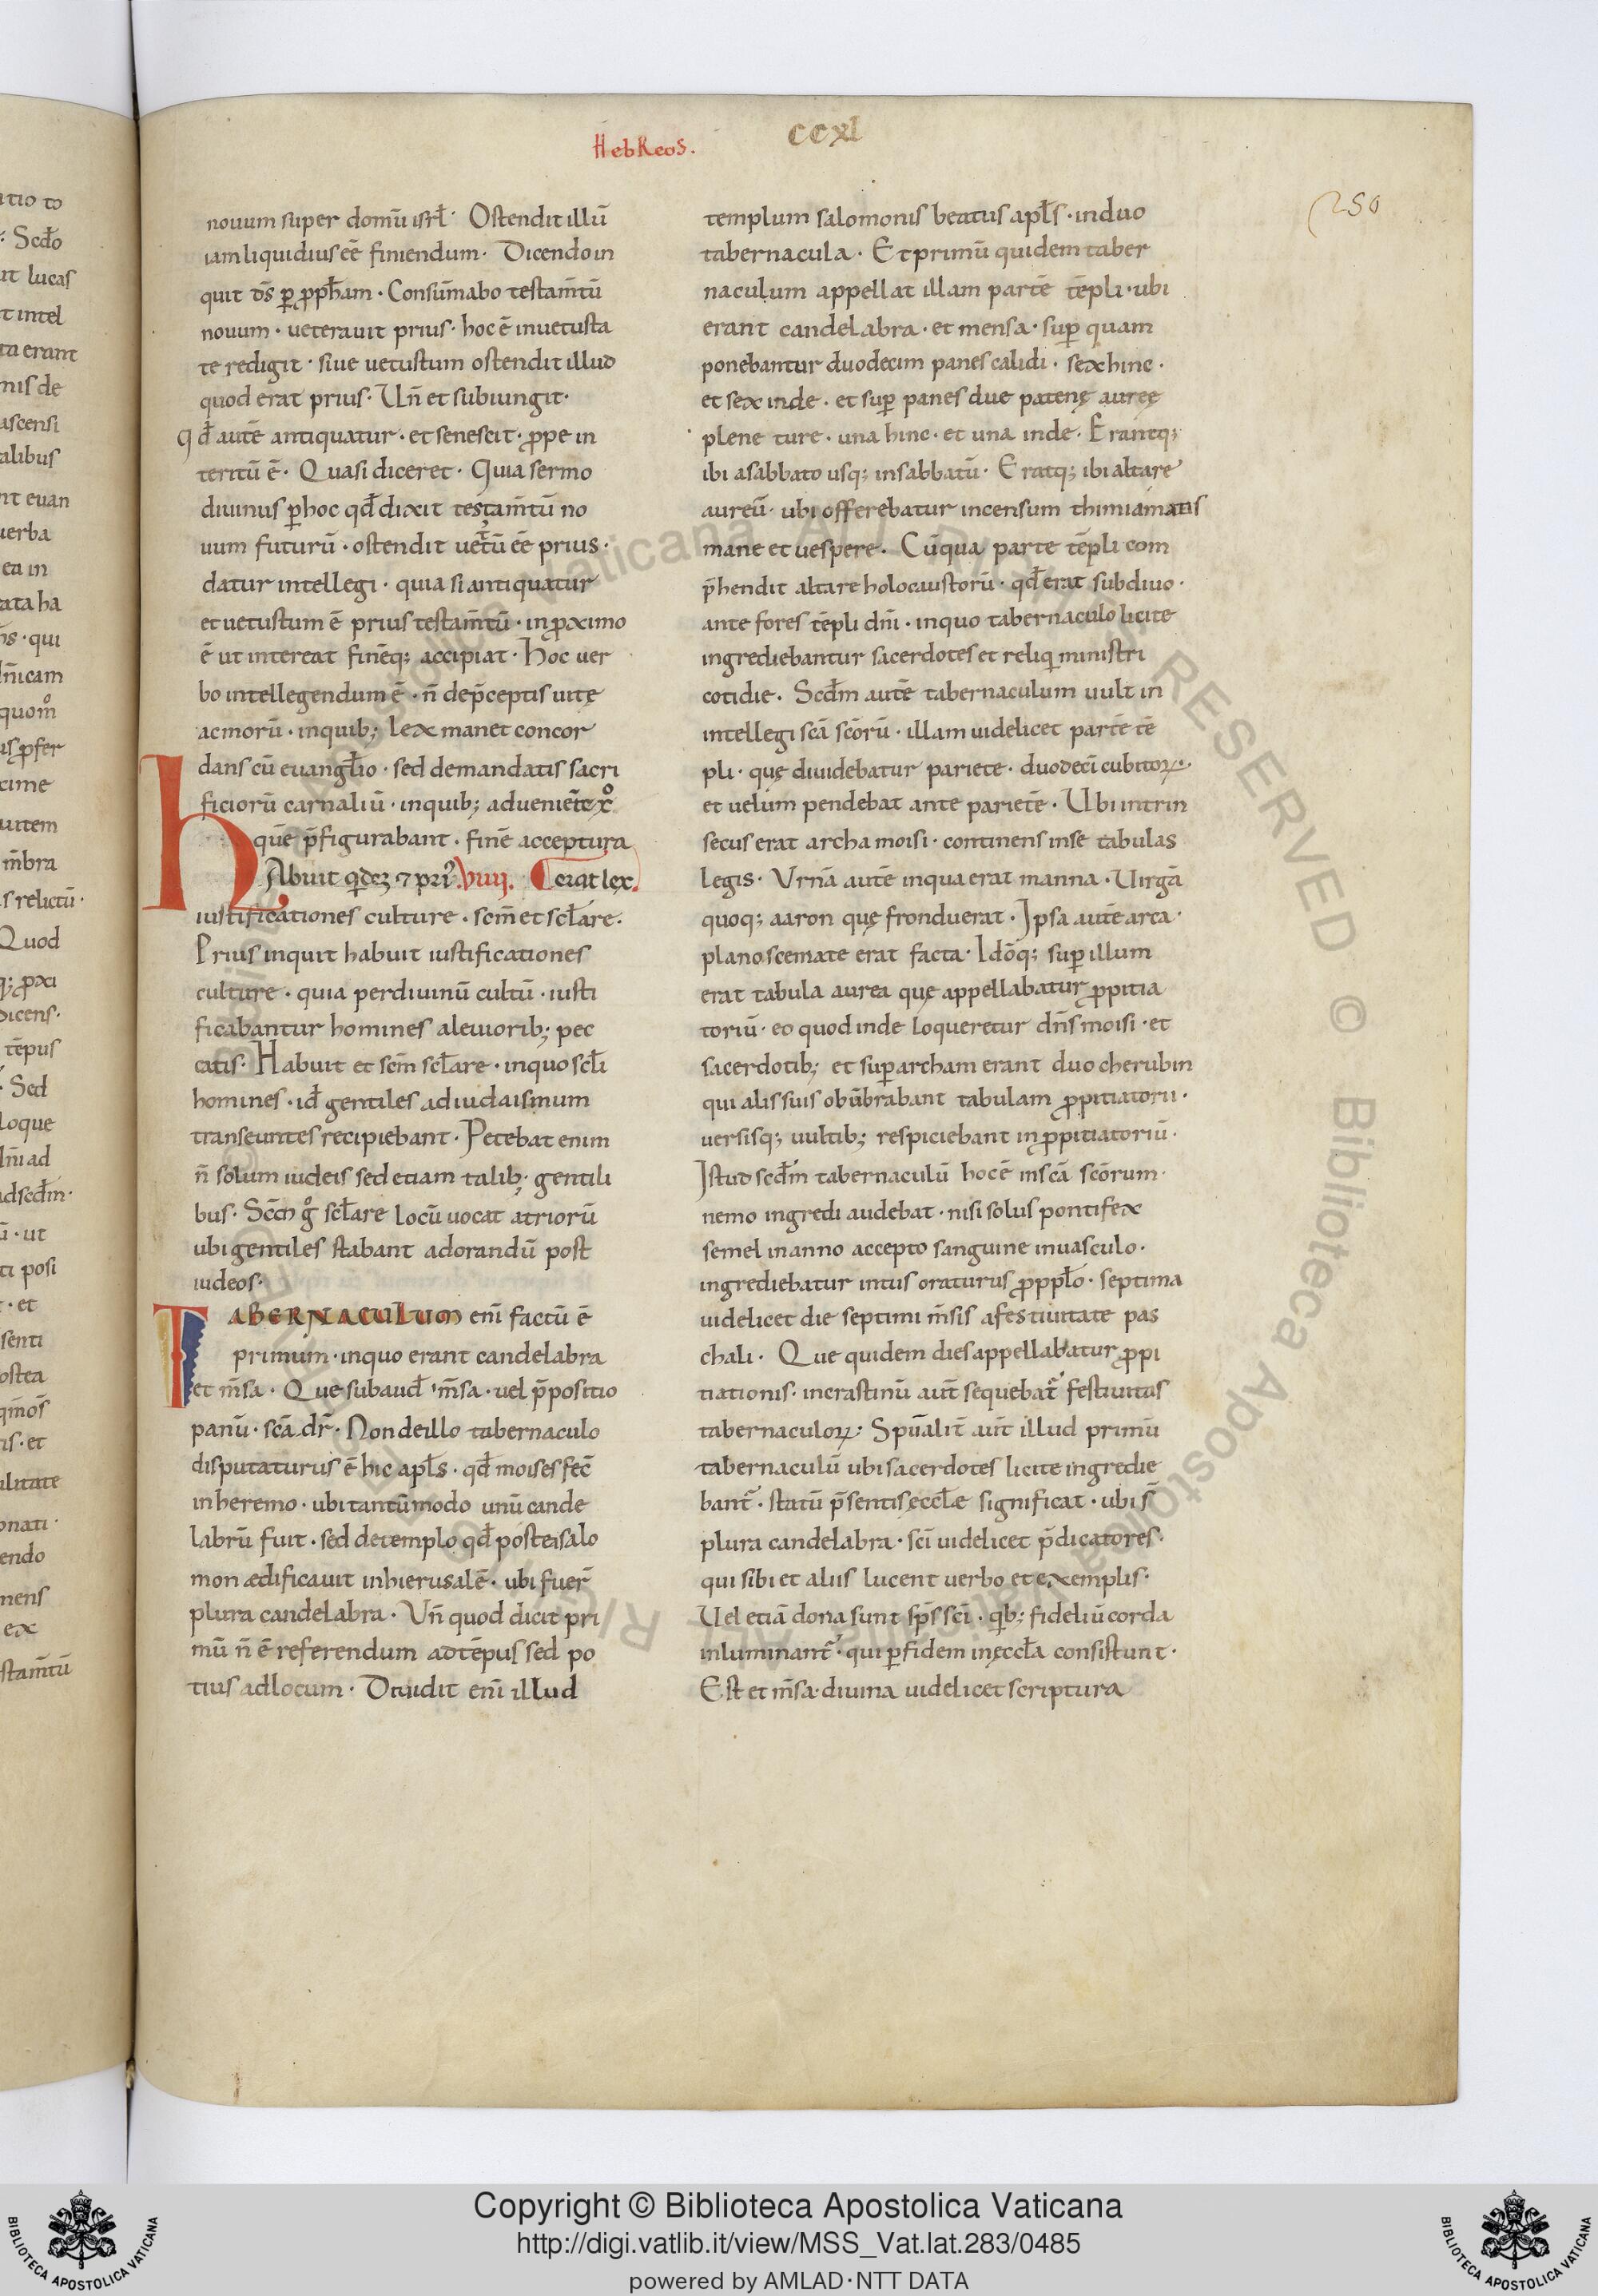 HebReos.
ccxl
250
nouum super domū isrł· Ostendit illū
iam liquidius eē finiendum· Dicendo in
quit d̄s ꝑ ꝓpħam · Consūmabo testam̄tū
nouum · ueterauit prius · hoc ē inuetusta
te redigit · siue uetustum ostendit illud
quod erat prius · Un̄ et subiungit·
qđ autē antiquatur · et senescit · ꝓpe in
teritū ē · Quasi diceret · Quia sermo
diuinus ꝑ hoc qđ dixit testam̄tū no
uum futurū · ostendit uet̄ū eē prius ·
datur intellegi · quia si antiquatur
et uetustum ē prius testam̄tū · in ꝓximo
ē ut intereat finēq; accipiat · hoc uer
bo intellegendum ē · n̄ de p̄ceptis uitę
ac morū · in quib; lex manet concor
dans cū euangłio · sed de mandatis sacri
ficiorū carnaliū · in quib; adueniēte xo
quē p̄figurabant · finē acceptura
hAbuit qidez ⁊ pri· VIIII. erat lex.
iustificationes culture · scm̄ et scłare ·
Prius inquit habuit iustificationes
culture · quia per diuinū cultū · iusti
ficabantur homines a leuiorib; pec
catis · Habuit et scm̄ scłare · in quo scłi
homines · iđ gentiles ad iudaismum
transeuntes recipiebant · Petebat enim
n̄ solum iudeis sed etiam talib; gentili
bus · Scm̄ go scłare locū uocat atriorū
ubi gentiles stabant adorandū post
iudeos ·
TABERNACULUM enī factū ē
primum · in quo erant candelabra
et m̄sa · Que subaud̄ m̄sa · uel p̄positio
panū · scā dr̄ · Non de illo tabernaculo
disputaturus ē hic apłs · qđ moises fec̄
in heremo · ubi tantūmodo unū cande
labrū fuit · sed de templo qđ postea salo
mon ædificauit in hierusalē · ubi fuer̄
plura candelabra · Vn̄ quod dicit pri
mū n̄ ē referendum ad tēpus sed po
tius ad locum · Diuidit enī illud
templum salomonis beatus apłs · in duo
tabernacula · Et primū quidem taber
naculum appellat illam partē tēpli · ubi
erant candelabra · et mensa · suꝑ quam
ponebantur duodecim panes calidi · sex hinc ·
et sex inde · et suꝑ panes due patenę aureę
plene ture · una hinc · et una inde · Erantq;
ibi a sabbato usq; in sabbatū · Eratq; ibi altare
aureū · ubi offerebatur incensum thimiamatis
mane et uespere · Cū qua parte tēpli com
p̄hendit altare holocaustorū · qđ erat sub diuo ·
ante fores tēpli dn̄i · in quo tabernaculo licite
ingrediebantur sacerdotes et reliqi ministri
cotidie · Scđm autē tabernaculum uult in
intellegi scā scōrū · illam uidelicet partē tē
pli · quę diuidebatur pariete · duodecī cubitoꝝ ·
et uelum pendebat ante parietē · Ubi intrin
secus erat archa moisi · continens in se tabulas
legis · Vrnā autē in qua erat manna · Uirgā
quoq; aaron quę fronduerat · Ipsa autē arca ·
plano scemate erat facta · Idōq; suꝑ illum
erat tabula aurea quę appellabatur ꝓpitia
toriū · eo quod inde loqueretur dn̄s moisi · et
sacerdotib; et suꝑ archam erant duo cherubin
qui alis suis obūbrabant tabulam ꝓpitiatorii ·
uersisq; uultib; respiciebant in ꝓpitiatoriū ·
Istud scđm tabernaculū hoc ē in scā scōrum ·
nemo ingredi audebat · nisi solus pontifex
semel in anno accepto sanguine in uasculo ·
ingrediebatur intus oraturus ꝓ pplo · septima
uidelicet die septimi m̄sis a festiuitate pas
chali · Que quidem dies appellabatur ꝓpi
tiationis · in crastinū aut̄ sequebat̄ festiuitas
tabernaculoꝝ · Spūalit̄ aut̄ illud primū
tabernaculū ubi sacerdotes licite ingredie
bant̄ · statū p̄sentis ęccłæ significat · ubi s̄
plura candelabra · scī uidelicet p̄dicatores ·
qui sibi et aliis lucent uerbo et exemplis ·
Uel etiā dona sunt sp̄s scī · qib; fideliū corda
inluminant̄ · qui ꝑ fidem in ęccła consistunt ·
Est et m̄sa · diuina uidelicet scriptura
Copyright © Biblioteca Apostolica Vaticana
http://digi.vatlib.it/view/MSS_Vat.lat.283/0485
powered by AMLAD·NTT DATA
BIBLIOTECA APOSTOLICA VATICANA
BIBLIOTECA APOSTOLICA VATICANA